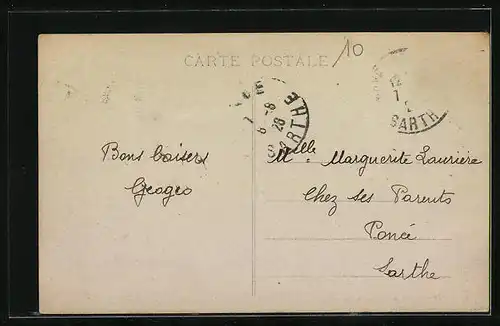 CARTE POSTALE
10
8 -8
28
SARTHE
12
7
SARTH
Bons baisers
Geogeo
Mlle Marguerite Laurière
Chez ses Parents
Poncé
Sarthe